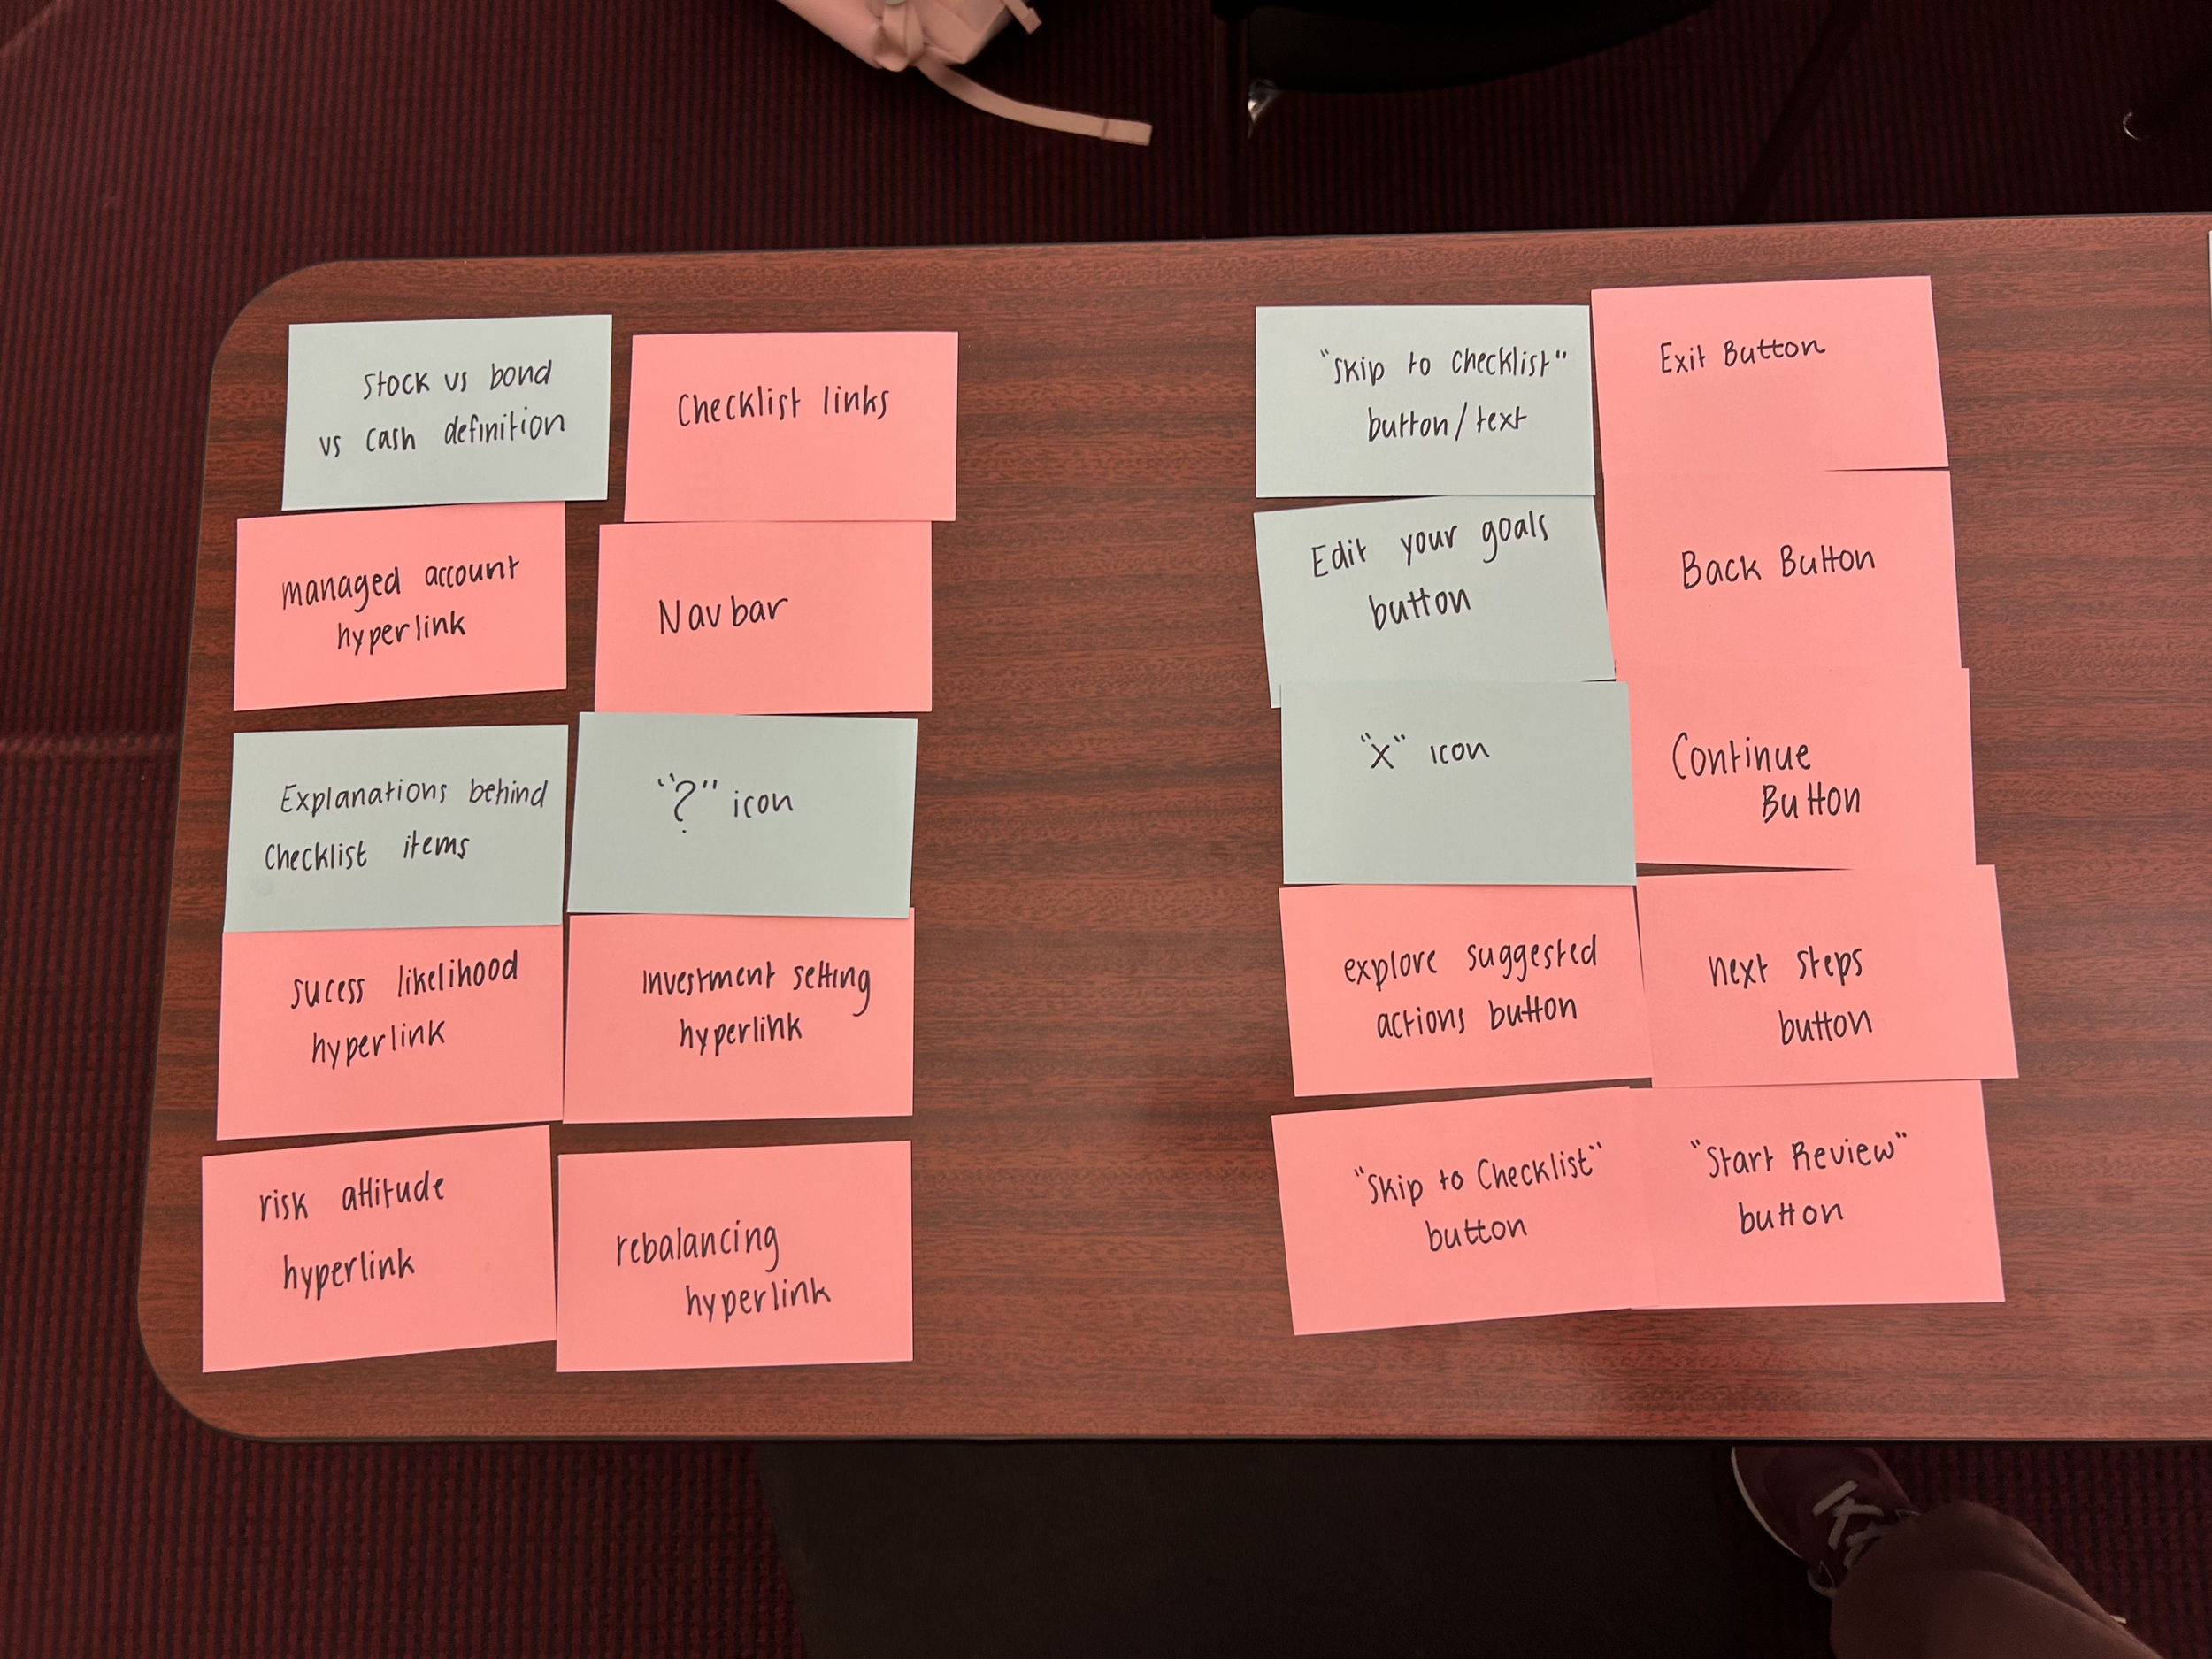 Stock vs bond
vs cash definition
Checklist links
managed account
hyperlink
Nav bar
Explanations behind
Checklist items
"?" icon
sucess likelihood
hyperlink
investment setting
hyperlink
risk attitude
hyperlink
rebalancing
hyperlink
"Skip to Checklist"
button/text
Exit Button
Edit your goals
button
Back Button
"X" icon
Continue
Button
explore suggested
actions button
next steps
button
"Skip to Checklist"
button
"Start Review"
button